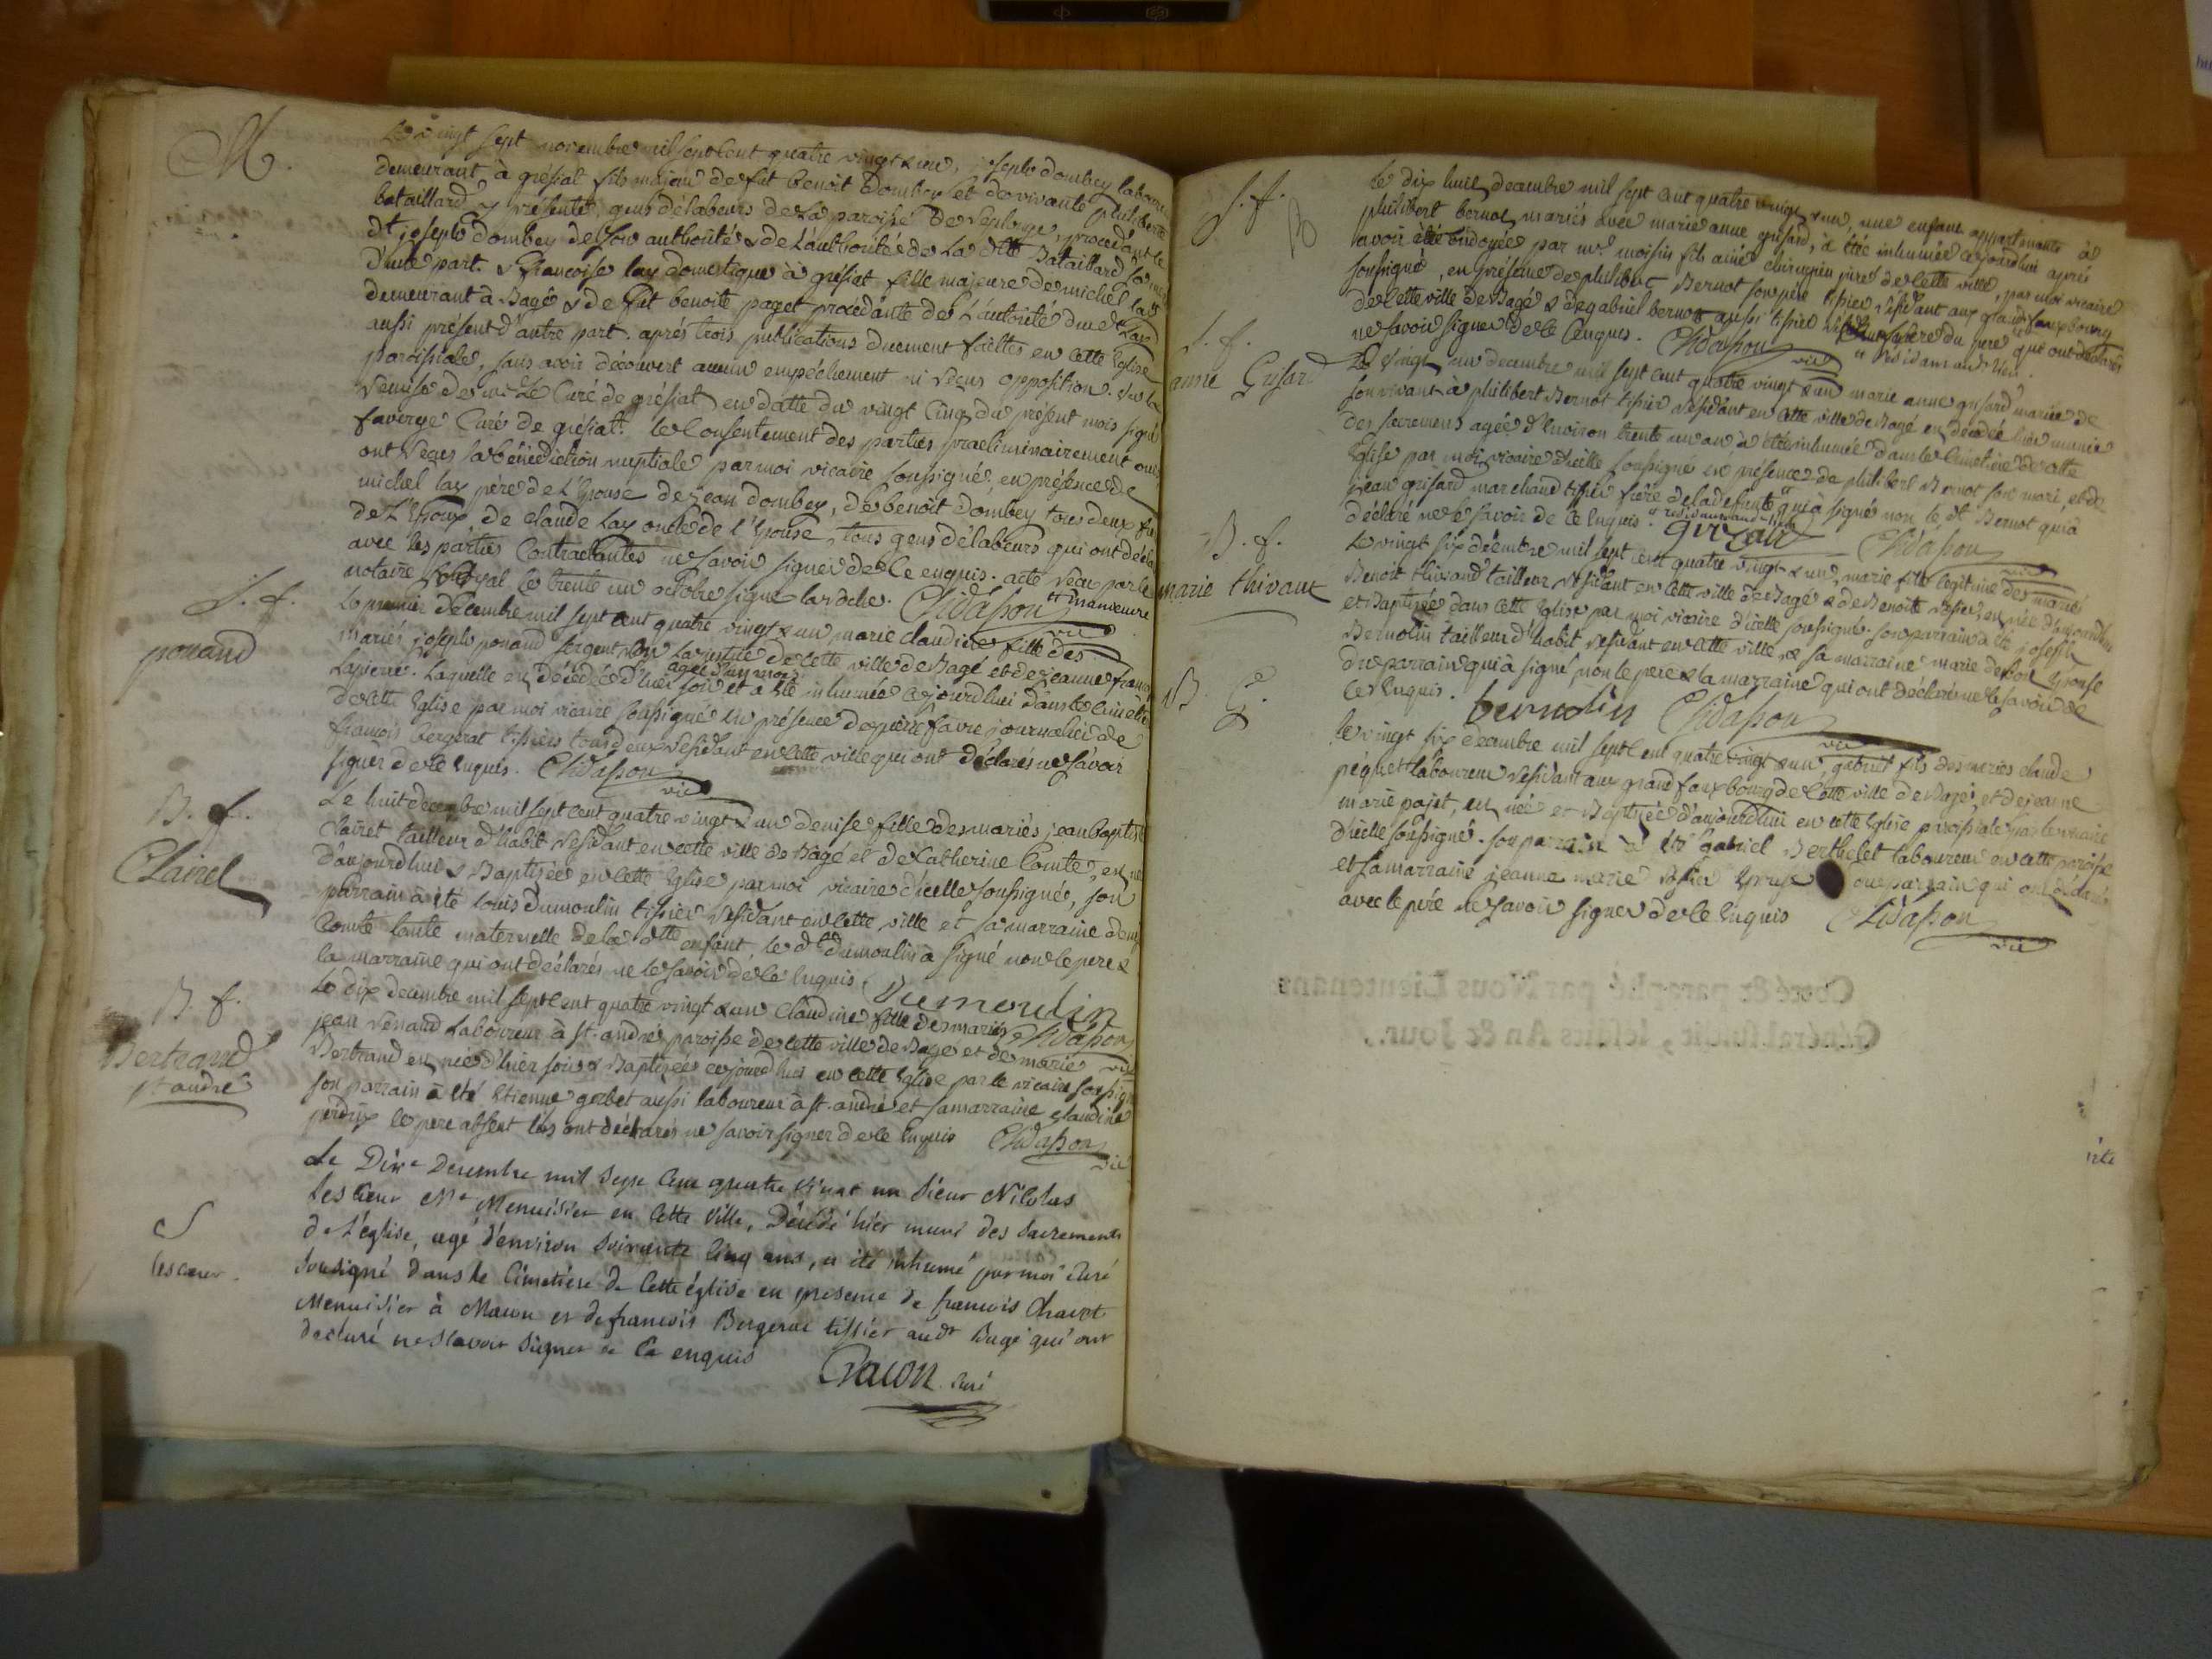 M.
Le vingt sept novembre mil sept cent quatre vingt & un, joseph dombey laboureur
demeurant à grésiat fils majeur de fut benoit Dombey et de vivante philiberte
bataillard y présente, gens de labeurs de la paroisse de Replonge, procédant le
dt joseph dombey de son authorité & de l'authorité de la dtte Bataillard sa mere
d'une part. & françoise lay domestique à grésiat fille majeure de michel lay
demeurant à Bagé & de fut benoite paget procédante de l'autorité du dt Lay
aussi présent d'autre part. aprés trois publications duement faittes en cette Eglise
paroissiale, sans avoir découvert aucun empéchement ni reçus opposition. Vu la
remise de mr Le Curé de grésiat en datte du vingt cinq du présent mois signé
faverge Curé de grésiat. le Consentement des parties praeliminairement oui
ont reçus la bénédiction nuptiale par moi vicaire soussigné, en présence de
michel lay père de L'Epouse de jean dombey, de benoit dombey tous deux fre
de L'Epoux, de claude Lay oncle de l'Epouse, tous gens de labeurs qui ont décla
avec les parties Contractantes ne savoir signer de ce enquis. acte recu par le
notaire Royal le trente un octobre signé laroche. Chidasson vic
S. f.
ponand
Le premier décembre mil sept cent quatre vingt & un marie claudine fille des
mariés joseph ponand sergent en la justice de cette ville de Bagé et de jeanne françoise
agée d'un mois
Lapierre. Laquelle est décédée d'hier soir et a été inhumée cejourd'hui dans le Cimetiere
de cette Eglise par moi vicaire soussigné en présence de pierre favre journalier & de
francois bergerat tissiers tous deux résidant en cette ville qui ont déclarés ne savoir
signer de ce enquis. Chidasson vic
B. f.
Clairet
Le huit decembre mil sept cent quatre vingt & un denise fille des mariés jean Baptiste
Clairet tailleur d'habit résidant en cette ville de Bagé et de Catherine Comte, est née
d'aujourd'hui & Baptisée en cette Eglise par moi vicaire d'icelle soussigné, son
parrain à été louis dumoulin tissier résidant en cette ville et sa marraine denise
Comte tante maternelle de la dtte enfant le dt dumoulin à signé non le pere &
la marraine qui ont déclarés ne le savoir de ce enquis. Dumoulin
Chidasson vic
B. f.
Bertrand
St andré
Le dix decembre mil sept cent quatre vingt & un Claudine fille des mariés
jean renaud Laboureur à st. andré paroisse de cette ville de Bagé et de marie
Bertrand est née d'hier soir & Baptisée cejourd'hui en cette Eglise par le vicaire soussigné
son parrain à été Etienne gerbet aussi laboureur à st. andré et sa marraine claudine
perdrix le pere absent les ont déclarés ne savoir signer de ce enquis Chidasson vic
S
Lescœur.
Le Dixe Decembre mil Sept Cent quatre vingt un Sieur Nicolas
Lescœur Me Menuisier en Cette Ville, Décédé hier muni des Sacrements
de L'église, agé d'environ Soixante Cinq ans, a été inhumé par moi Curé
Sousigné dans le Cimetiére de Cette église en presence de francois Chavot
Menuisier à Macon et de francois Bergerat tissier audt Bagé qui ont
declaré ne Scavoir Signer de Ce enquis
Gacon. Curé
S. f.
B
le dix huit decembre mil sept cent quatre vingt & un, une enfant appartenante à
philibert bernot mariés avec marie anne grisard, à été inhumée cejourd'hui aprés
avoir été ondoyée par mr moisin fils ainé chirurgien juré de cette ville, par moi vicaire
soussigné, en présence de philibert Bernot son père tissier résidant aux grand fauxbourg
de cette ville de Bagé & de gabriel bernot aussi tissier frere du pere qui ont déclarés
ne savoir signer de ce Enquis. Chidasson vic
résidant au dit lieu
S. f.
anne Grisard
Le vingt un decembre mil sept cent quatre vingt & un marie anne grisard mariée de
son vivant à philibert Bernot tissier résidant en cette ville de Bagé est décédée hier munie
des sacremens agée d'environ trente un an à été inhumée dans le Cimetière de cette
Eglise par moi vicaire d'icelle soussigné en présence de philibert Bernot son mari, et de
jean grisard marchand tissier frère de la defunte qui a signé non le dt Bernot qui a
déclaré ne le savoir de ce Enquis. grizard Chidasson vic
B. f.
marie thivant
Le vingt six décembre mil sept cent quatre vingt & un, marie fille legitime des mariés
Benoit thivand tailleur résidant en cette ville de Bagé & de Benoite est née d'aujourd'hui
et Baptisée dans cette Eglise par moi vicaire d'icelle soussigné. son parrain à été joseph
Bernolin tailleur d'habit résidant en cette ville & sa marraine marie Epouse
du parrain qui à signé non le pere & la marraine qui ont déclaré ne le savoir de
ce Enquis. bernolin Chidasson vic
B. G.
le vingt six decembre mil sept cent quatre vingt & un, gabriel fils des mariés claude
péquet laboureur résidant aux grand faux bourg de cette ville de Bagé, et de jeanne
marie pajet, est née et Baptisée d'aujourd'hui en cette Eglise paroissiale par le vicaire
d'icelle soussigné. son parrain à été gabriel Berthelet laboureur en cette paroisse
et sa marraine jeanne marie Epouse du parrain qui ont déclarés
avec le pere ne savoir signer de ce Enquis Chidasson vic
Cotté & paraphé par Nous Lieutenant
Général susdit, lesdits An & Jour.